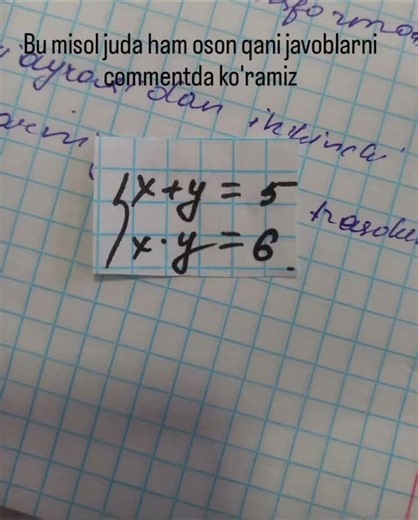 Bu misol juda ham oson qani javoblarni
commentda ko'ramiz
dan ikkinchi
x + y = 5
x · y = 6